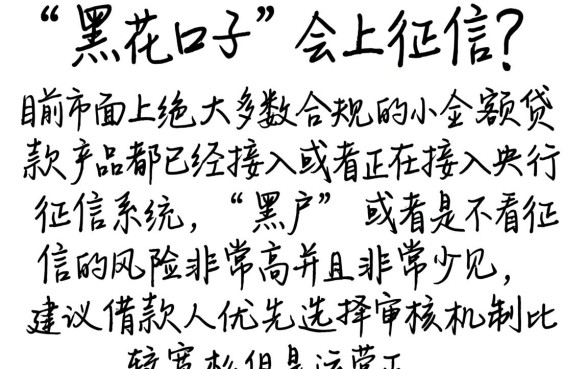 “黑花口子”会上征信?
目前市面上绝大多数合规的小金额贷
款产品都已经接入或者正在接入央行
征信系统，“黑户”或者是不看征
信的风险非常高并且非常少见，
建议借款人优先选择审核机制比
较宽松但是运营正